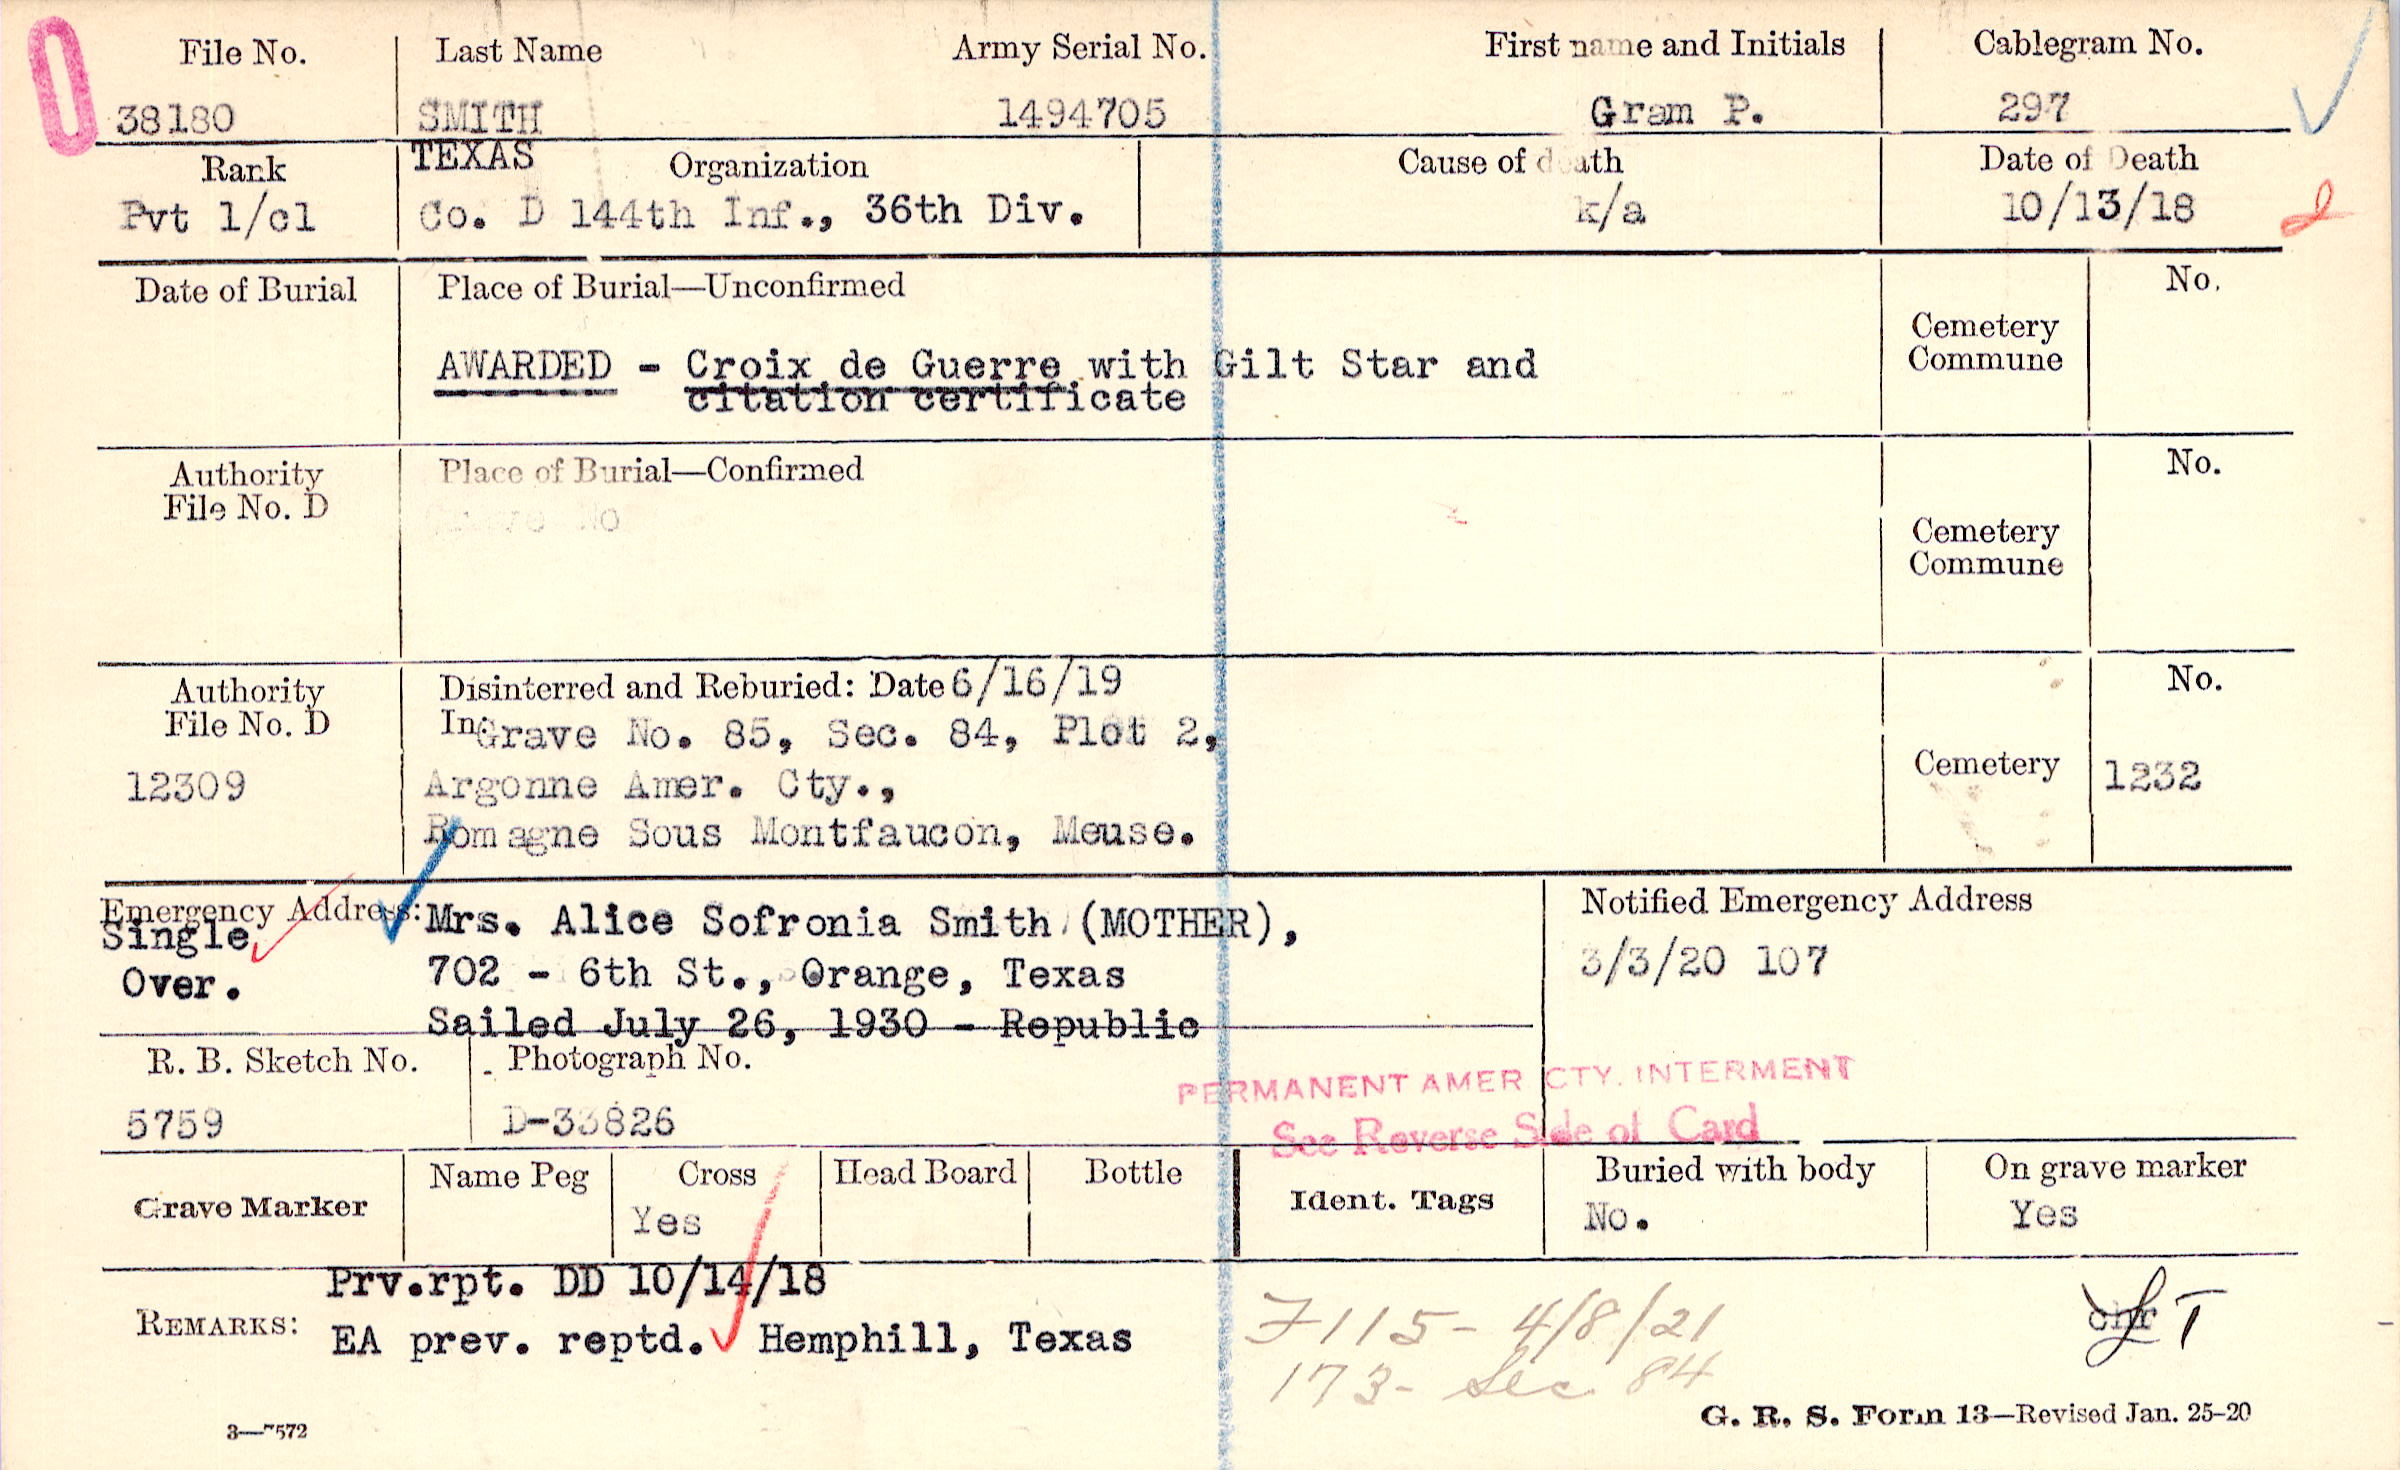 File No. Last Name Army Serial No. First name and Initials Cablegram No.
38180 SMITH 1494705 Gram P. 297
Rank TEXAS Organization Cause of death Date of Death
Pvt 1/cl Co. D 144th Inf., 36th Div. k/a 10/13/18
Date of Burial Place of Burial—Unconfirmed No.
Cemetery
Commune
AWARDED - Croix de Guerre with Gilt Star and
citation certificate
Authority Place of Burial—Confirmed No.
File No. D
No
Cemetery
Commune
Authority Disinterred and Reburied: Date 6/16/19 No.
File No. D In: Grave No. 85, Sec. 84, Plot 2,
12309 Argonne Amer. Cty., Cemetery 1232
Romagne Sous Montfaucon, Meuse.
Emergency Address: Mrs. Alice Sofronia Smith (MOTHER), Notified Emergency Address
Single
702 - 6th St., Orange, Texas 3/3/20 107
Over.
Sailed July 26, 1930 - Republic
R. B. Sketch No. Photograph No.
PERMANENT AMER CTY. INTERMENT
5759 D-33826 See Reverse Side of Card
Grave Marker Name Peg Cross Head Board Bottle Ident. Tags Buried with body On grave marker
Yes No. Yes
Prv.rpt. DD 10/14/18
REMARKS: EA prev. reptd. Hemphill, Texas
115- 4/8/21
173- Sec 84
3—7572 G. R. S. Form 13—Revised Jan. 25-20